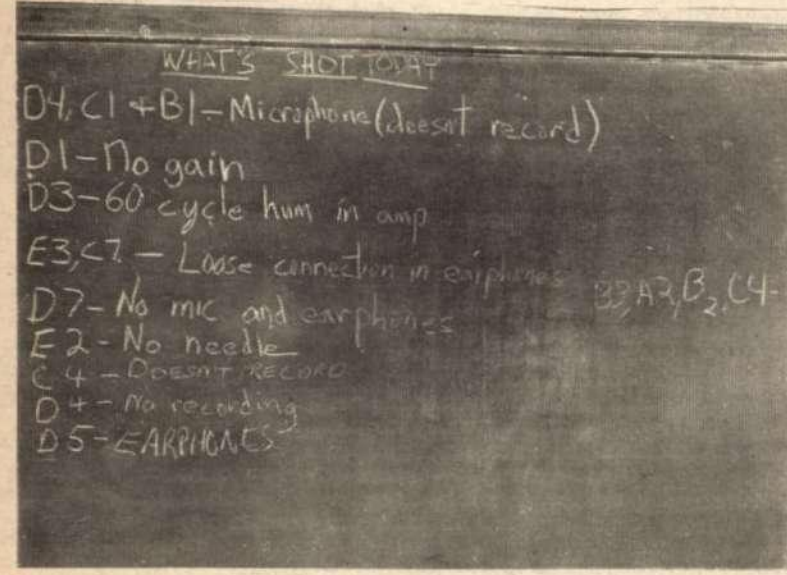 WHAT'S SHOT TODAY
D4, C1 + B1 - Microphone (doesnt record)
D1 - No gain
D3 - 60 cycle hum in amp
E3, C7 - Loose connection in earphones B3, A2, B2, C4 -
D7 - No mic and earphones
E2 - No needle
C4 - DOESNT RECORD
D4 - No recording
D5 - EARPHONES